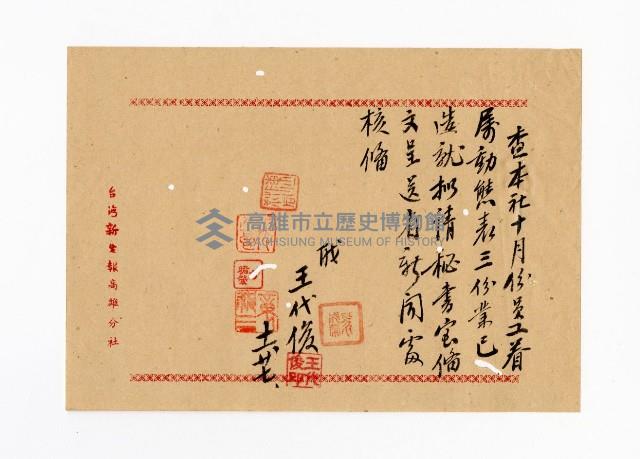 查本社十月份員工眷
屬動態表三份業已
造就擬請秘書室備
文呈送省新聞處
核備
職
王代俊
王代
俊印
十一廿七、
台灣新生報高雄分社
高雄市立歷史博物館
KAOHSIUNG MUSEUM OF HISTORY